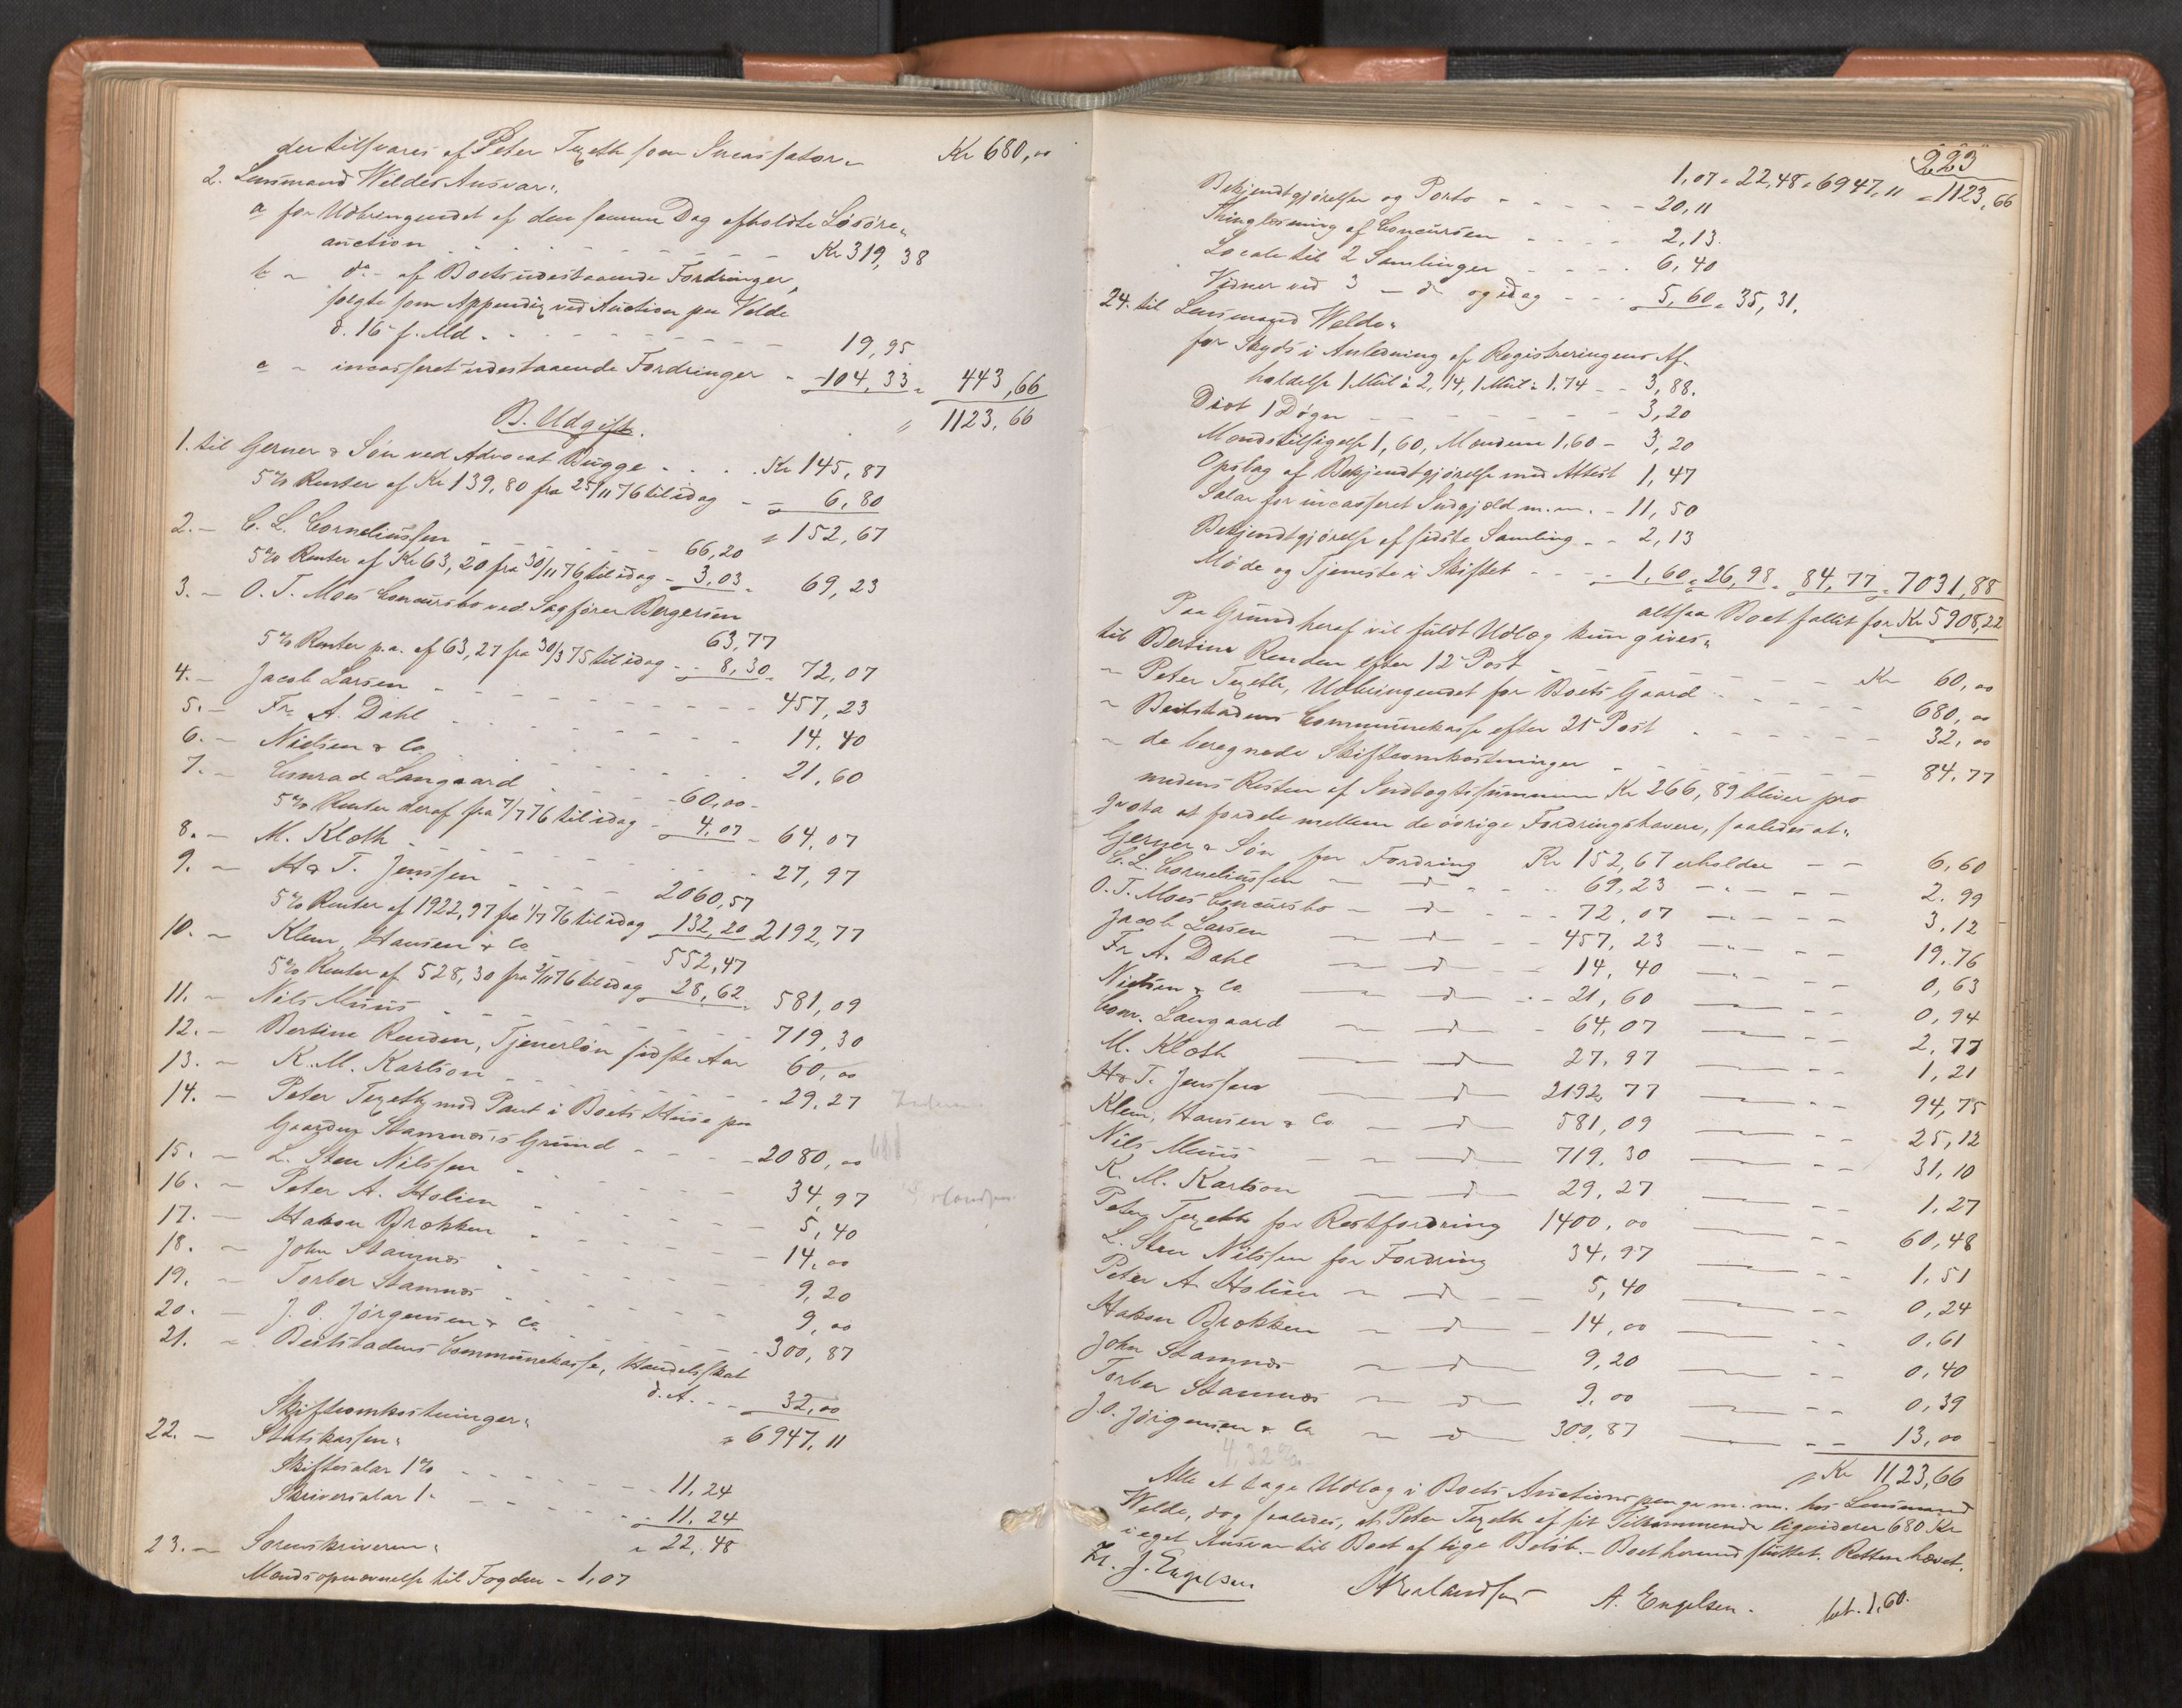 der tilsvares af Peter Texeth som Incassator „ Kr 680,00
2. Lensmand Weldes Ansvar:
a for Udbringendet af den samme Dag afholdte Løsøre-
auction - - - - - Kr 319,38
b „ do - af Boets udestaaende Fordringer,
solgte som Appendix ved Auction paa Velde
d. 16 f. Md. - - - - 19,95
c „ incasseret udestaaende Fordringer - 104,33 „ 443,66
„ 1123,66
B. Udgift.
1. til Gerner & Søn ved Advocat Bugge - - Kr 145,87
5% Renter af Kr 139,80 fra 25/11 76 til idag - „ 6,80
„ 152,67
2. — C. L. Corneliussen - - - 66,20
5% Renter af Kr 63,20 fra 30/11 76 til idag - 3,03 „ 69,23
3. — O. T. Moes Concursbo ved Sagfører Bergersen
63,77
5% Renter p.a. af 63,27 fra 30/3 75 til idag - - 8,30 „ 72,07
4. — Jacob Larsen - - - 457,23
5. — Fr. A. Dahl - - - 14,40
6. — Nielsen & Co - - - 21,60
7. — Conrad Langaard - - 60,00 -
5% Renter deraf fra 7/7 76 til idag - 4,07 - 64,07
8. — M. Kloth - - - 27,97
9. — H & T. Jenssen - - - 2060,57
5% Renter af 1922,97 fra 1/7 76 til idag 132,20 2192,77
10. — Klem, Hansen & Co - - 552,47
5% Renter af 528,30 fra 3/11 76 til idag 28,62 „ 581,09
11. — Nils Muus - - - 719,30
12. — Bertine Renden, Tjenerløn sidste Aar 60,00
13. — K. M. Karlson - - - 29,27
14. — Peter Texeth, mod Pant i Boets Huse paa
Gaarden Stamnæs's Grund - - - 2080,00
15. — L. Sten Nilssen - - - 34,97
16. — Peter A. Holien - - - 5,40
17. — Hakon Brokken - - - 14,00
18. — John Stamnæs - - - 9,20
19. — Torber Stamnæs - - - 9,00
20. — J. O. Jørgensen & Co - - 300,87
21. — Beitstadens Communekasse, Handelsskat
d. A. - - 32,00
„ 6947,11
Skifteomkostninger:
22. — Statskassen:
Skiftesalar 1% - - - 11,24
Skriversalar 1 „ - - - 11,24
„ 22,48
23. — Sorenskriveren:
Mandsopnævnelse til Fogden - 1,07
223
1,07 „ 22,48 „ 6947,11 „ 1123,66
Bekjendtgjørelser og Porto - - - - 20,11
Thinglæsning af Concursen - - - 2,13.
Locale til 2 Samlinger - - - 6,40
Vidner ved 3 — do og idag - - - 5,60 „ 35,31.
24. til Lensmand Welde:
for Skyds i Anledning af Registreringens Af-
holdelse 1 Mil à 2,14, 1 Mil à 1,74 - - 3,88.
Diæt 1 Døgn - - - - 3,20
Mandstilsigelse 1,60, Mændene 1,60 - 3,20
Opslag af Bekjendtgjørelse med Attest 1,47
Salar for incasseret Indgjæld m. m. - 11,50
Bekjendtgjørelse af sidste Samling - - 2,13
Møde og Tjeneste i Skiftet - - - 1,60 „ 26,98 „ 84,77 „ 7031,88
altsaa Boet fallit for Kr 5908,22
Paa Grund heraf vil fuldt Udlæg kun gives:
til Bertine Renden efter 12te Post - - - Kr 60,00
„ Peter Texeth, Udbringendet for Boets Gaard - - 680,00
„ Beitstadens Communekasse efter 21de Post - - - 32,00
„ de beregnede Skifteomkostninger - - - 84,77
medens Resten af Indtægtssummen Kr 266,89 bliver pro
quota at fordele mellem de øvrige Fordringshavere, saaledes at:
Gerner & Søn for Fordring Kr 152,67 erholder - - 6,60
C. L. Corneliussen — do - - 69,23 - - - 2.99
O. T. Moes Concursbo — do - - 72,07 - - - 3,12
Jacob Larsen — do - - 457,23 - - - 19.76
Fr. A. Dahl — do - - 14,40 - - - 0,63
Nielsen & Co — do - - 21,60 - - 0,94
Conr. Langaard — do - 64,07 - - 2,77
M. Kloth — do 27,97 - - 1,21
H & T. Jenssen — do 2192,77 - - 94,75
Klem, Hansen & Co — do 581,09 - - 25,12
Nils Muus — do 719,30 - - 31,10
K. M. Karlson — do 29,27 - - 1,27
Peter Texeth for Restfordring 1400,00 - - 60,48
L. Sten Nilssen for Fordring 34,97 - - 1,51
Peter A Holien — do - - 5,40 - - 0,24
Hakon Brokken — do - 14,00 - - 0,61
John Stamnæs — do 9,20 - - 0,40
Torber Stamnæs — do 9,00 - - 0,39
J. O. Jørgensen & Co — do 300,87 - - 13,00
„ Kr 1123,66
4,32%
Alle at tage Udlæg i Boets Auctionspenge m. m. hos Lensmand
Welde, dog saaledes, at Peter Texeth af sit Tilkommende liquiderer 680 Kr
i eget Ansvar til Boet af lige Beløb. — Boet hermed sluttet. Retten hævet.
J. Engelsen A. Engelsen. bet. 1,60.